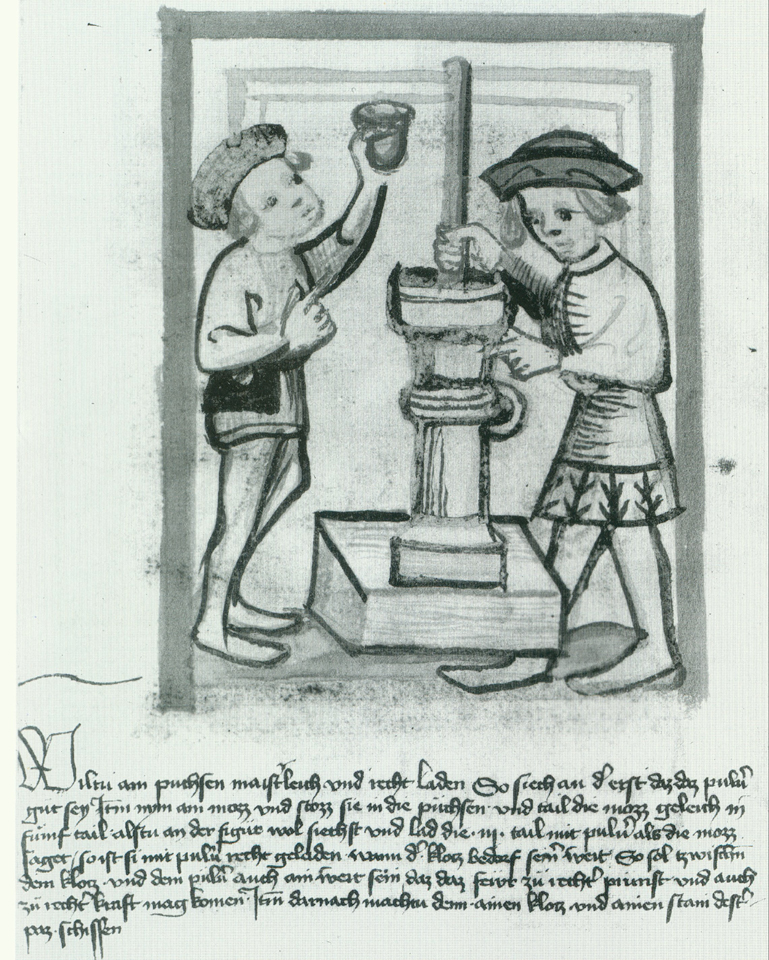 Wiltu ain puchsen maistleich vnd recht laden So siech an dˀ erst daz daz puluˀ
gut sey Itm nym ain mozz vnd stozz sie in die püchsen vnd tail die mozz geleich in
fünf tail alstu an der figur wol siechst vnd lad die iij tail mit puluˀ als die mozz
saget so ist si mit puluˀ recht geladen wann dˀ klotz bedorf seinˀ weit So sol tzwischn
dem klotz vnd dem puluˀ auch ain weit sein daz daz fewr zü rechtˀ prunst vnd auch
zü rechtˀ kraft mag komen Itm darnach machtu dein ainen klotz vnd ainen stain destˀ
paz schissen